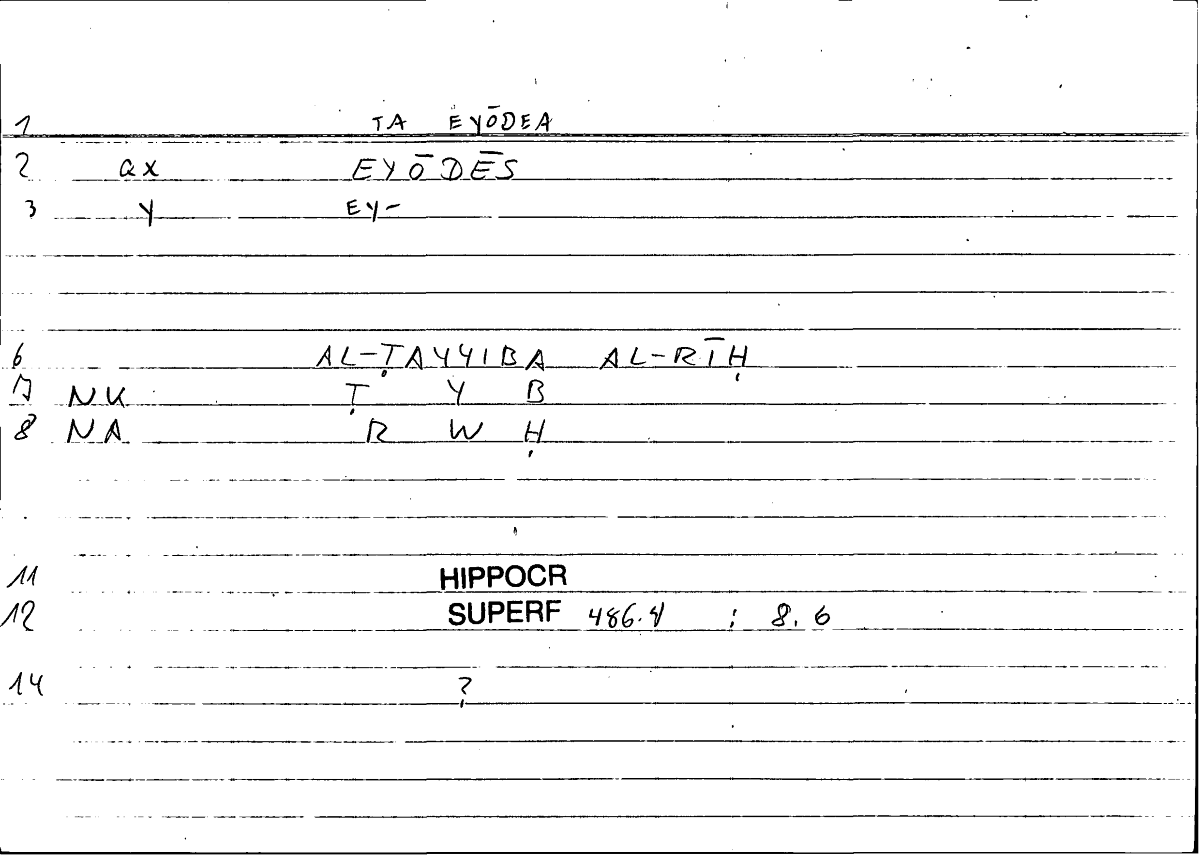 1 TA EYŌDEA
2 QX EYŌDĒS
3 Y EY-
6 AL-ṬAYYIBA AL-RĪḤ
7 NK Ṭ Y B
8 NA R W Ḥ
11 HIPPOCR
12 SUPERF 486.4 : 8.6
14 ?